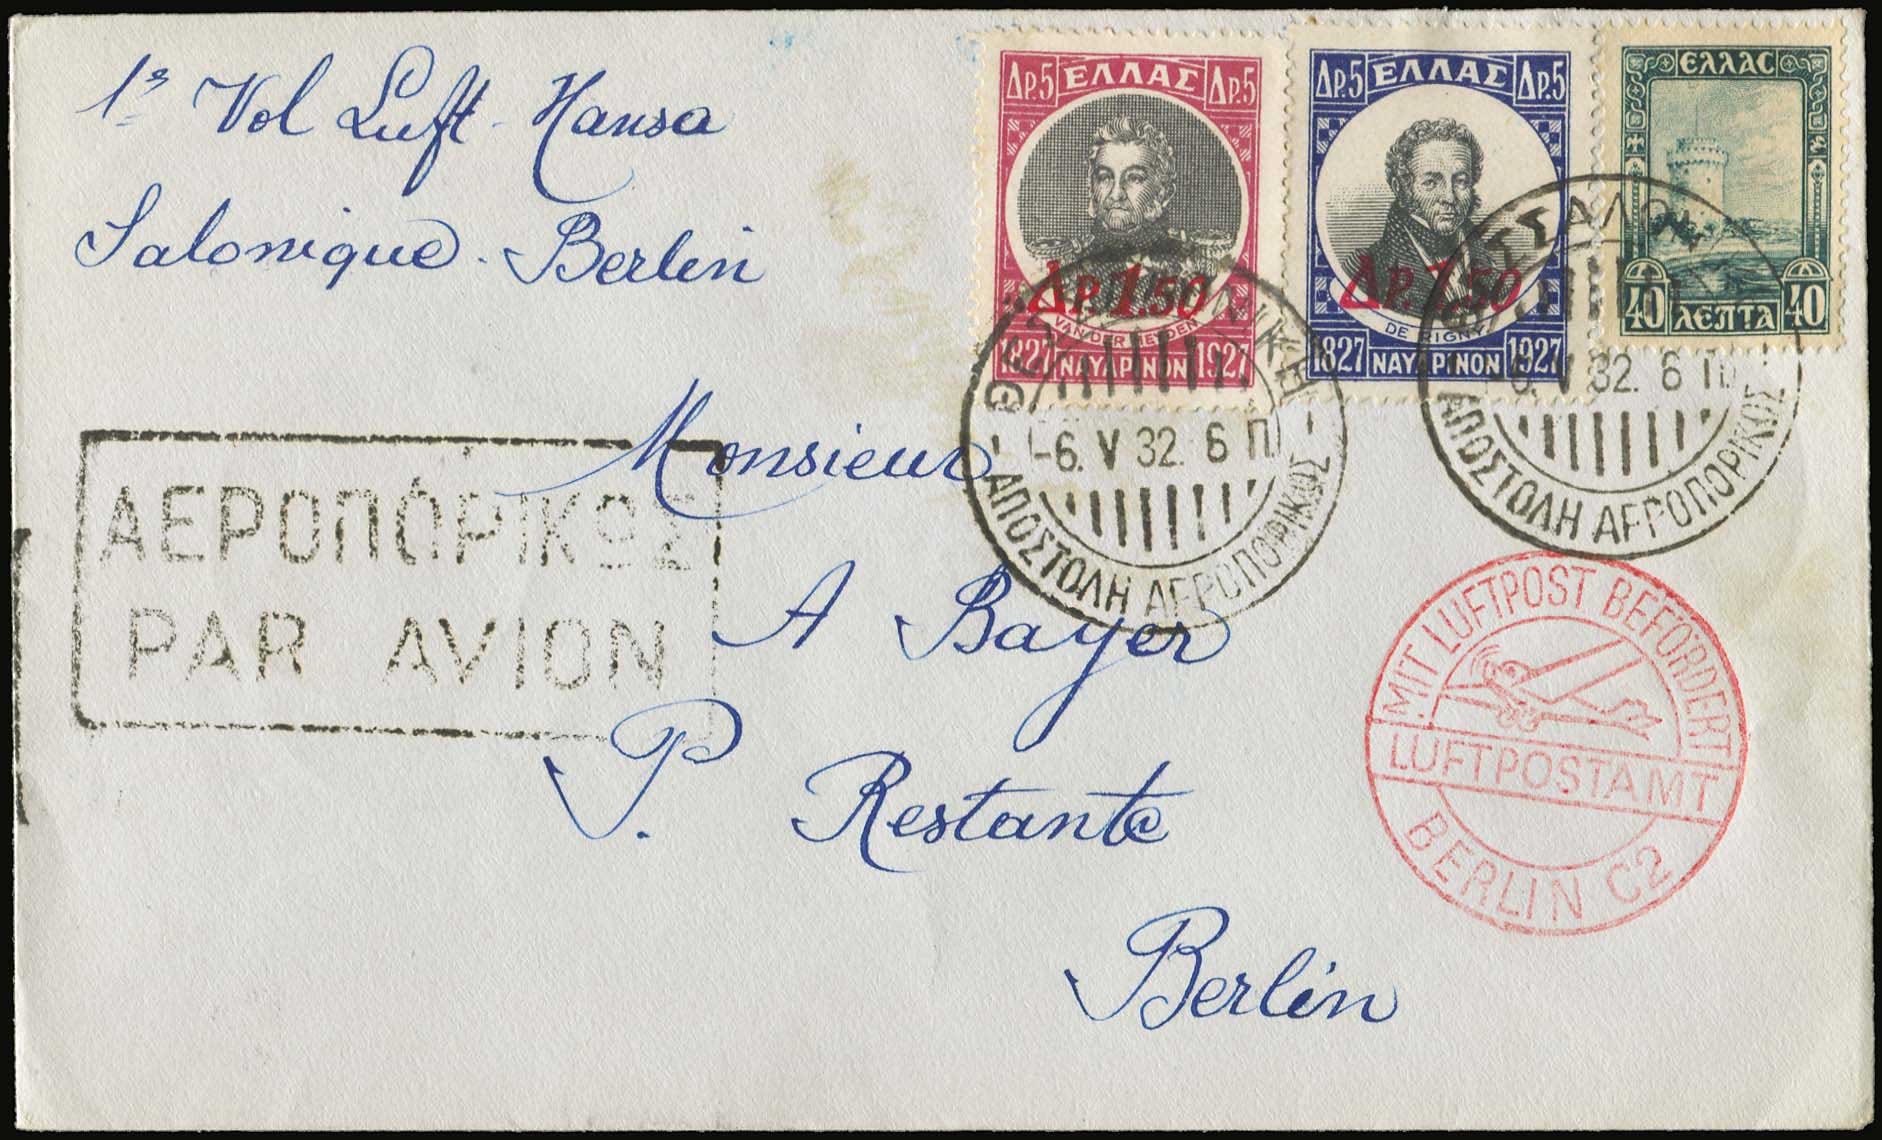 1re Vol Luft-Hansa
Salonique-Berlin
Δρ.5 ΕΛΛΑΣ Δρ.5
Δρ.1.50
VAN DER HEYDEN
1827 ΝΑΥΑΡΙΝΟΝ 1927
Δρ.5 ΕΛΛΑΣ Δρ.5
Δρ.1.50
DE RIGNY
1827 ΝΑΥΑΡΙΝΟΝ 1927
ΕΛΛΑΣ
40 ΛΕΠΤΑ 40
ΘΕΣΣΑΛΟΝΙΚΗ
-6.V 32. 6 Π
ΑΠΟΣΤΟΛΗ ΑΕΡΟΠΟΡΙΚΩΣ
ΘΕΣΣΑΛΟΝ
-6.V 32. 6 Π
ΑΠΟΣΤΟΛΗ ΑΕΡΟΠΟΡΙΚΩΣ
ΑΕΡΟΠΟΡΙΚΩΣ
PAR AVION
Monsieur
A Bayer
P. Restante
Berlin
MIT LUFTPOST BEFÖRDERT
LUFTPOSTAMT
BERLIN C2